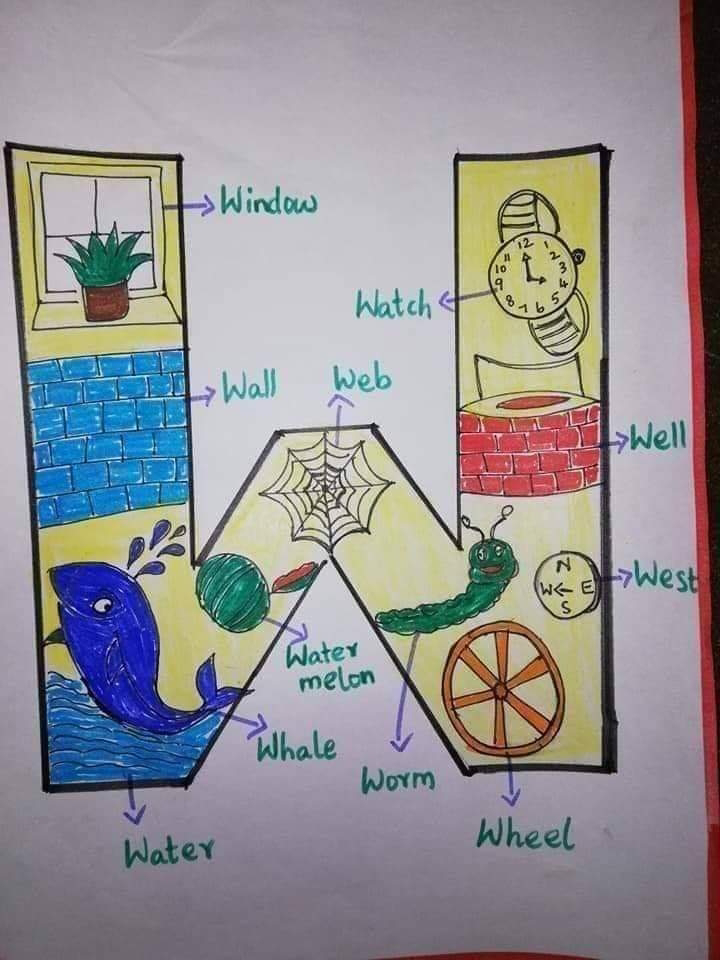 Window
12
11 1
10 2
9 3
8 4
7 6 5
Watch
Wall
Web
Well
N
W E
S
West
Water
melon
Whale
Worm
Water
Wheel